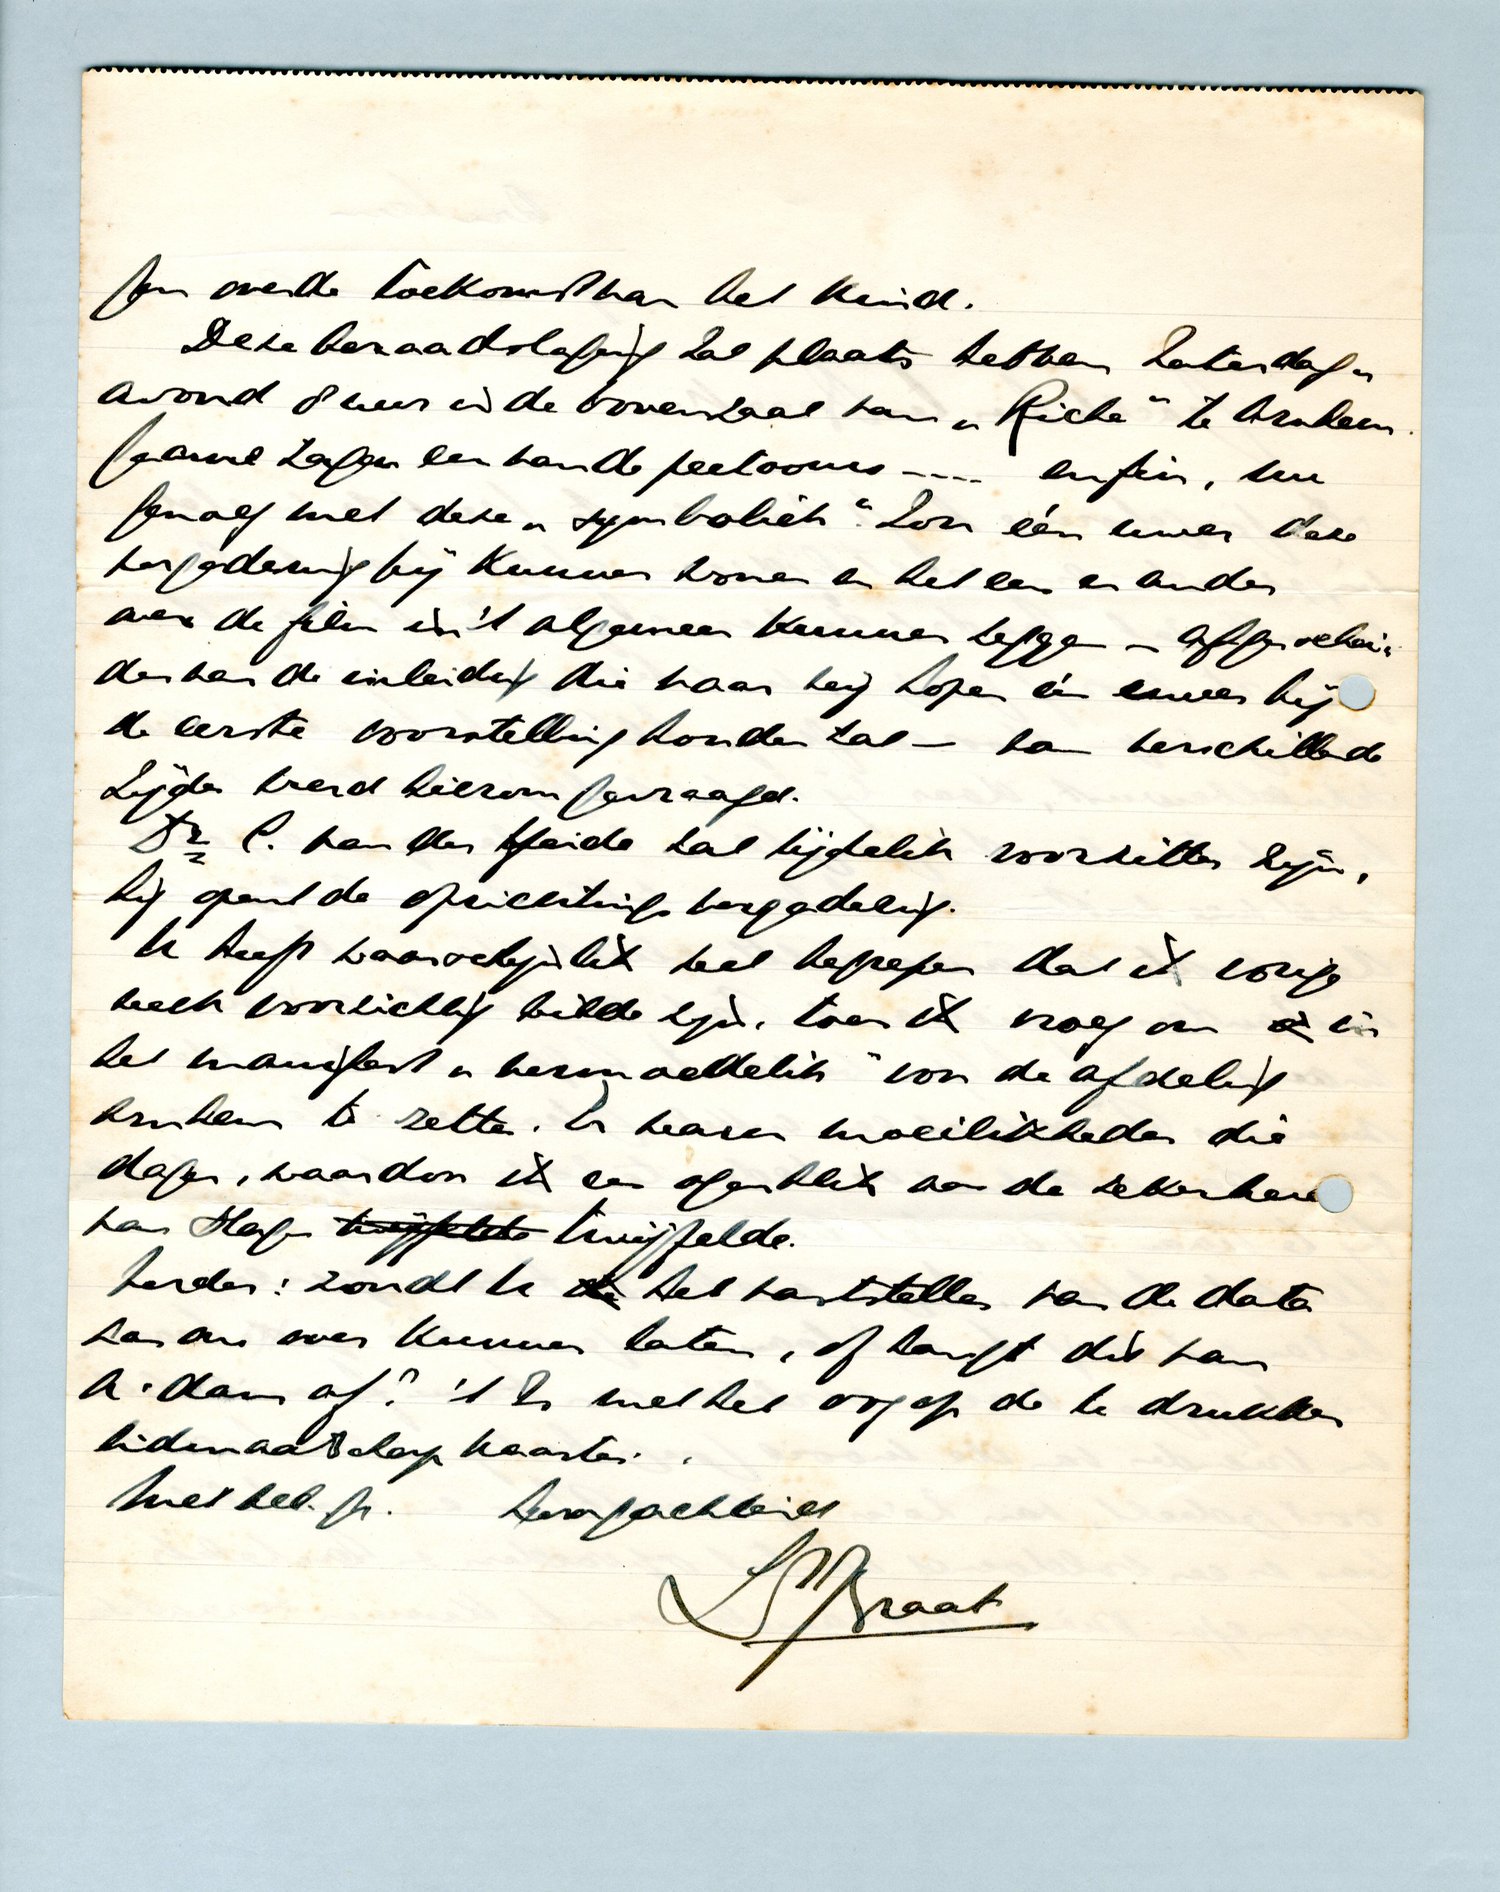 gen over de toekomst van het kind.
Deze beraadslaging zal plaats hebben Zaterdag-
avond 8 uur in de bovenzaal van „Riche" te Arnhem.
Gaarne zagen een van de peetooms .... enfin, nu
genoeg met deze „symboliek". Zou één uwer deze
vergadering bij kunnen wonen en het een en ander
over de film in 't algemeen kunnen zeggen – afgeschei-
den van de inleiding die naar wij hopen één uwer bij
de eerste voorstelling houden zal – van verschillende
zijden werd hierom gevraagd.
Dr C. van der zal tijdelijk voorzitter zijn,
hij opent de oprichtingsvergadering.
U heeft waarschijnlijk wel begrepen dat ik vorige
week voorzichtig wilde zijn, toen ik vroeg om in
het manifest „vermoedelijk" voor de afdeling
Arnhem te zetten. Er waren moeilikheden die
dagen, waardoor ik een ogenblik aan de zekerheid
van slagen twijfelde twijfelde.
Verder: zoudt U het vaststellen van de data
aan ons over kunnen laten, of hangt dit van
A'dam af? 't Is met het oog op de te drukken
lidmaatschap kaarten.
Met bel. gr. hoogachtend
LPJBraat